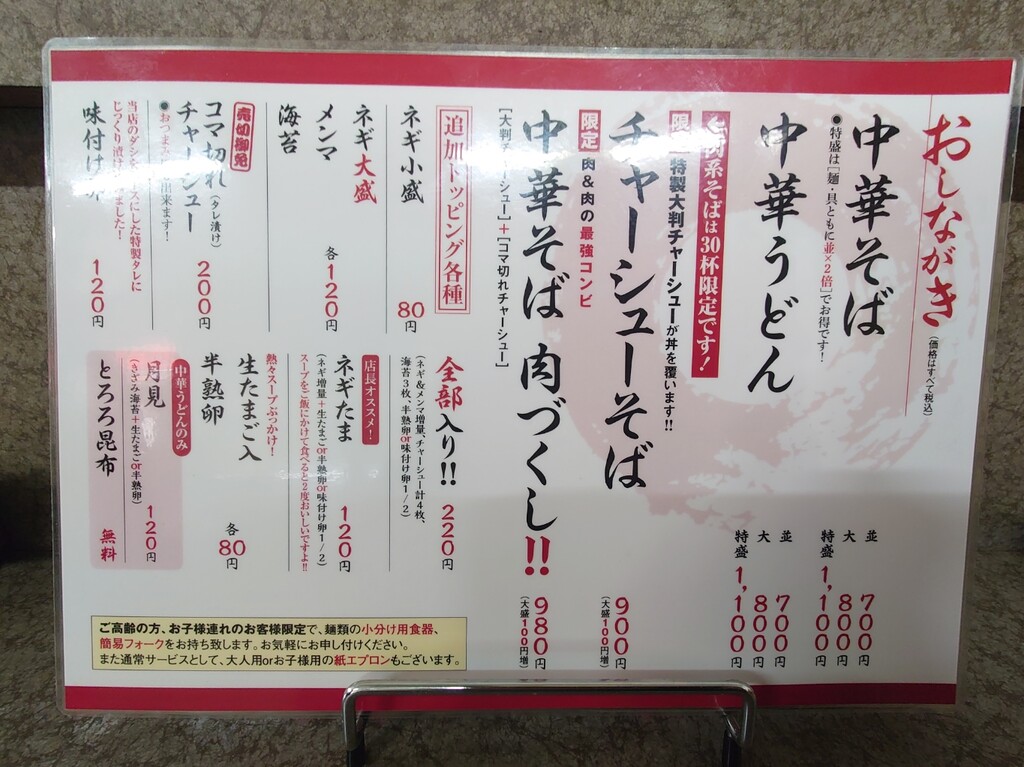 おしながき
(価格はすべて税込)
中華そば
●特盛は[麺・具ともに並×2倍]でお得です!
並 700円
大 800円
特盛 1,100円
中華うどん
並 700円
大 800円
特盛 1,100円
系そばは30杯限定です!
特製大判チャーシューが丼を覆います!!
チャーシューそば
900円
(大盛100円増)
限定 肉&肉の最強コンビ
中華そば 肉づくし!!
980円
(大盛100円増)
[大判チャーシュー]+[コマ切れチャーシュー]
追加トッピング各種
ネギ小盛 80円
ネギ大盛
メンマ
海苔
各120円
売切御免
コマ切れ(タレ漬け)
チャーシュー
200円
味付け卵
120円
全部入り!! 220円
(ネギ&メンマ増量、チャーシュー計4枚、
海苔3枚、半熟卵or味付け卵1/2)
店長オススメ!
ネギたま 120円
(ネギ増量+生たまごor半熟卵or味付け卵1/2)
スープをご飯にかけて食べると2度おいしいですよ!!
生たまご入
熱々スープぶっかけ!
半熟卵
各80円
中華うどんのみ
月見 120円
(きざみ海苔+生たまごor半熟卵)
とろろ昆布 無料
ご高齢の方、お子様連れのお客様限定で、麺類の小分け用食器、
簡易フォークをお持ち致します。お気軽にお申し付けください。
また通常サービスとして、大人用orお子様用の紙エプロンもございます。